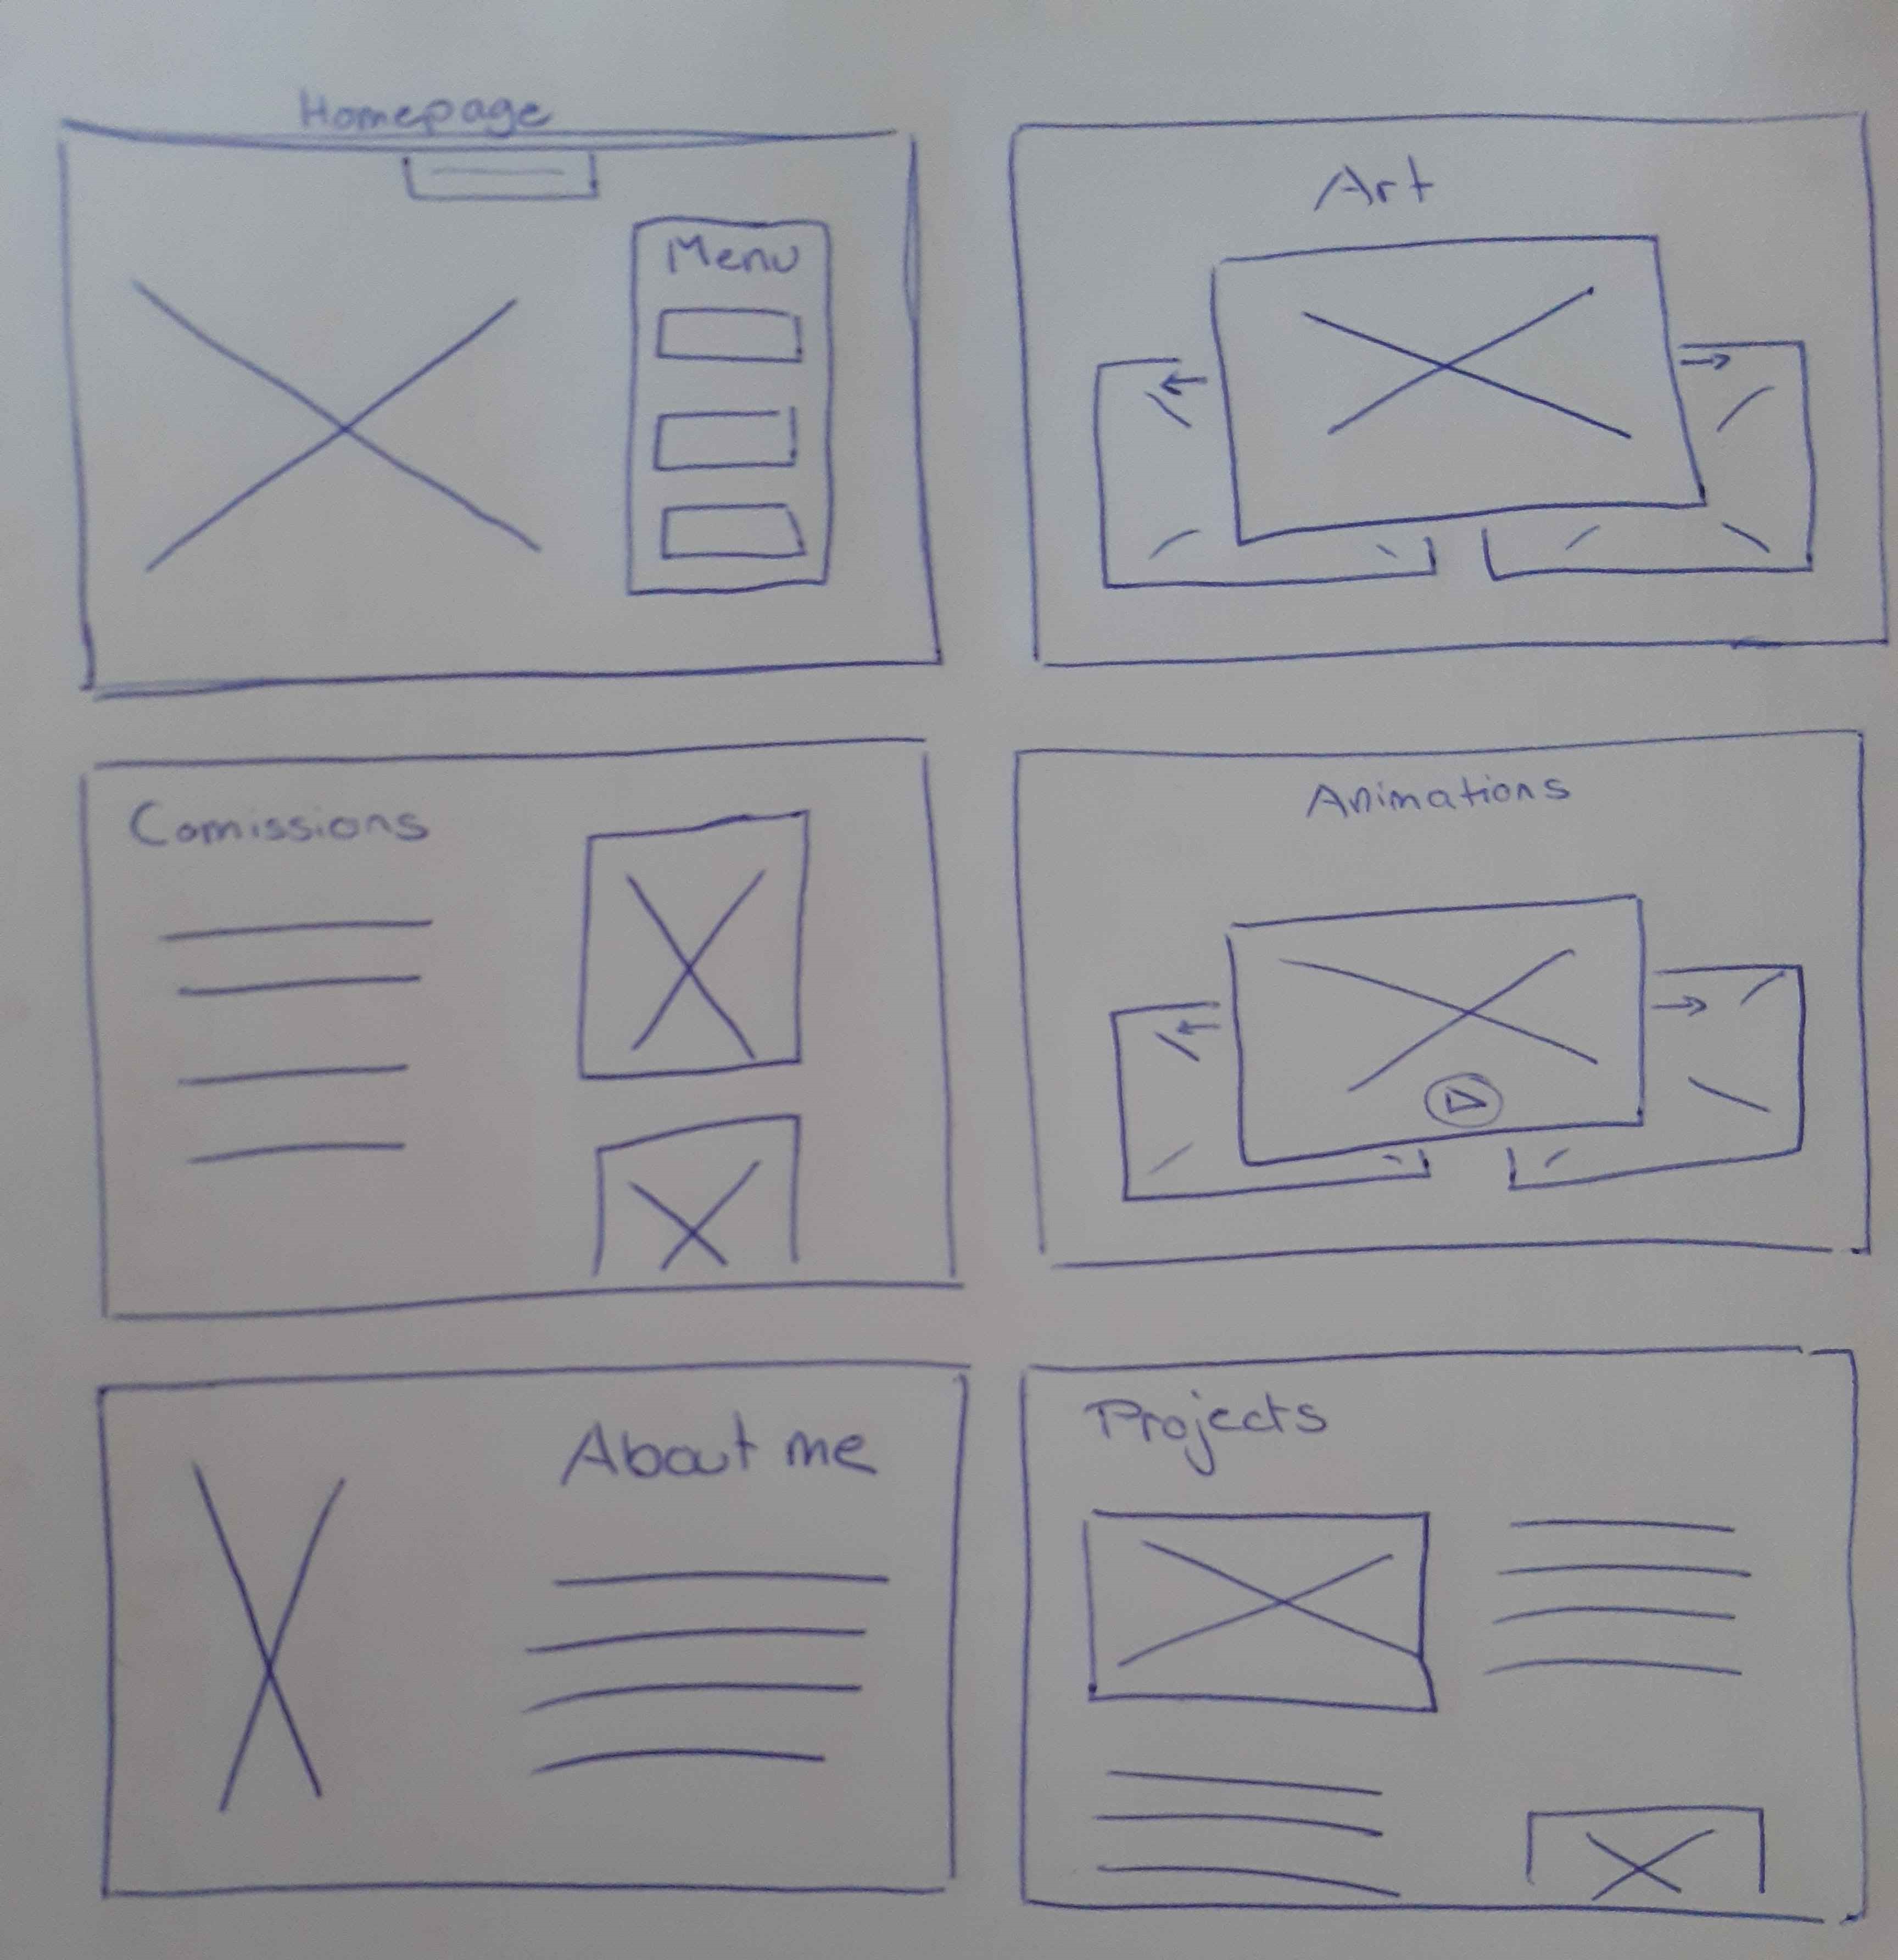 Homepage
Menu
Art
Comissions
Animations
About me
Projects